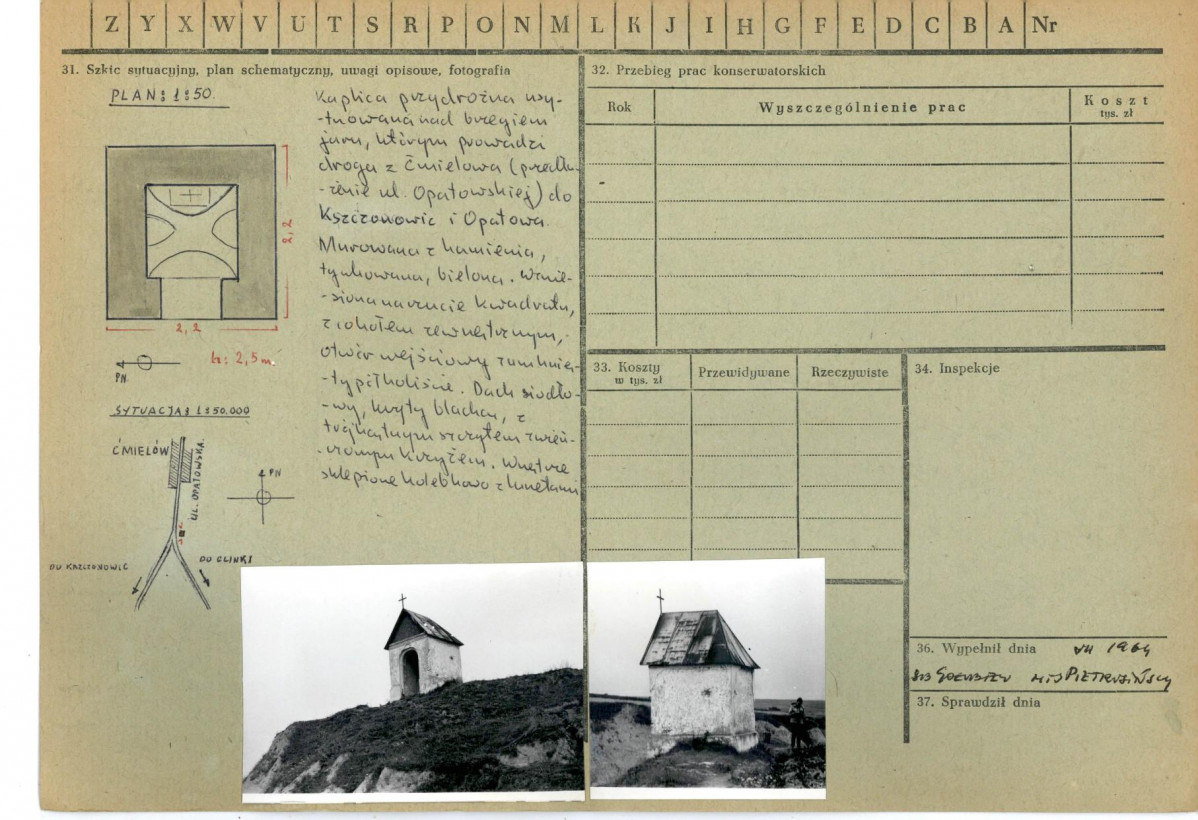 Z Y X W V U T S R P O N M L K J I H G F E D C B A Nr
31. Szkic sytuacyjny, plan schematyczny, uwagi opisowe, fotografia
PLAN: 1:50.
2,2
2,2
h: 2,5 m.
PN.
SYTUACJA: 1:50.000
ĆMIELÓW
UL. OPATOWSKA.
PN
DO KRZCZONOWIC
DO GLINKI
Kaplica przydrożna usy-
-tuowana nad brzegiem
jaru, którym prowadzi
droga z Ćmielowa (przedłu-
-żenie ul. Opatowskiej) do
Kszczonowic i Opatowa.
Murowana z kamienia,
tynkowana, bielona. Wznie-
-siona na rzucie kwadratu,
z cokołem zewnętrznym,
otwór wejściowy zamknię-
-ty półkoliście. Dach siodło-
-wy, kryty blachą, z
trójkątnym szczytem zwień-
-czonym krzyżem. Wnętrze
sklepione kolebkowo z lunetami
32. Przebieg prac konserwatorskich
Rok
Wyszczególnienie prac
Koszt
tys. zł
33. Koszty
w tys. zł
Przewidywane
Rzeczywiste
34. Inspekcje
36. Wypełnił dnia VII 1964
37. Sprawdził dnia